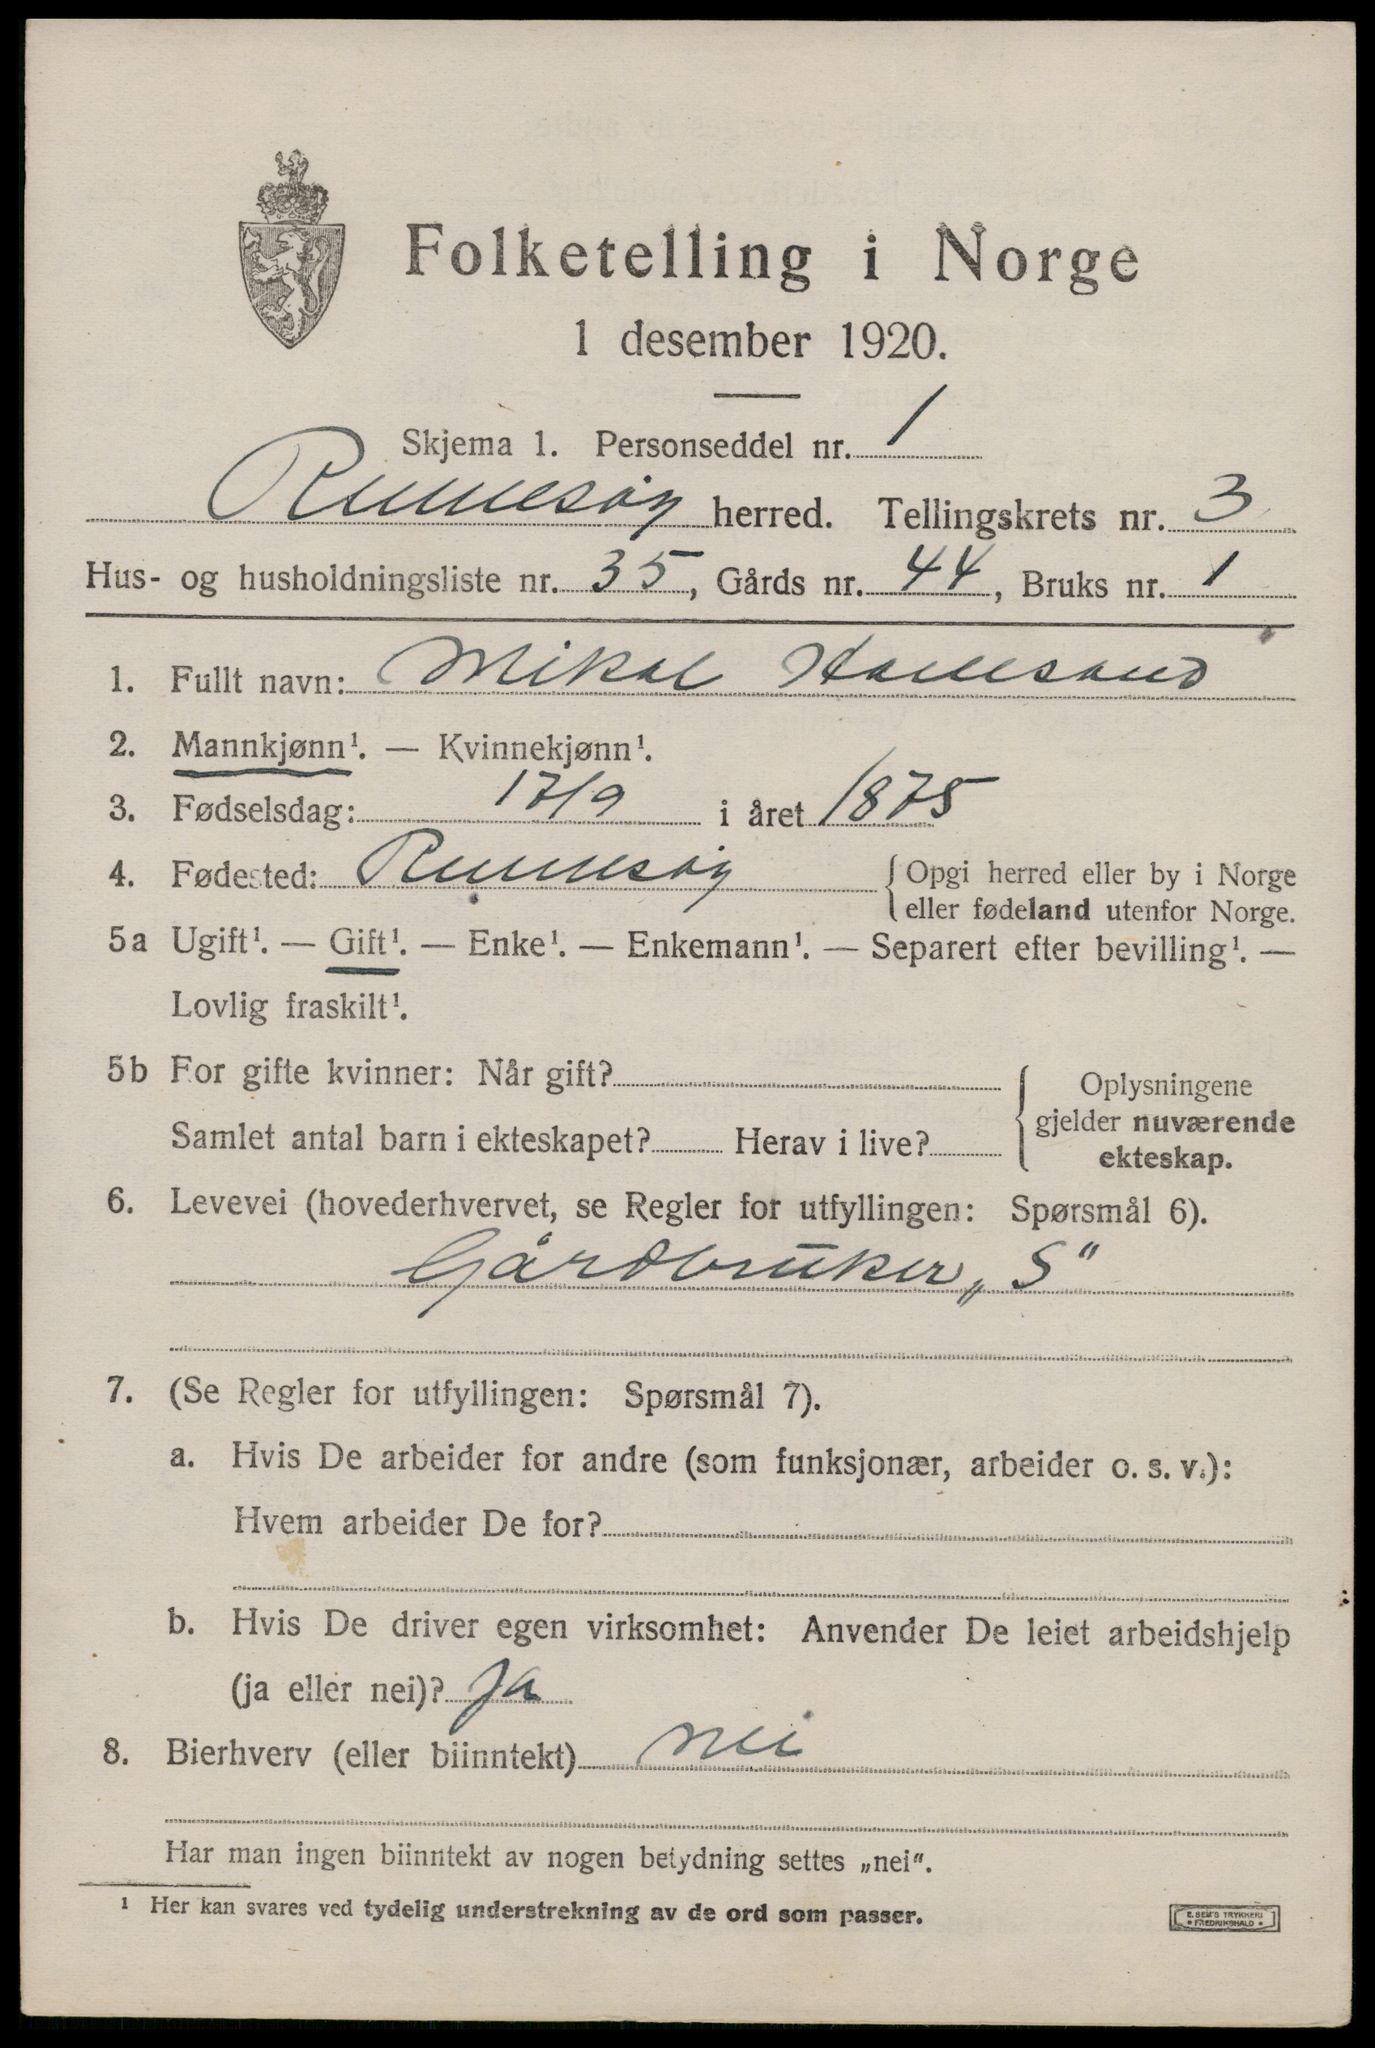 Folketelling i Norge
1 desember 1920.
Skjema 1. Personseddel nr. 1
Rennesøy herred. Tellingskrets nr. 3
Hus- og husholdningsliste nr. 35, Gårds nr. 44, Bruks nr. 1
1. Fullt navn: Mikal
2. Mannkjønn¹. — Kvinnekjønn¹.
3. Fødselsdag: 17/9 i året 1875
4. Fødested: Rennesøy {Opgi herred eller by i Norge
eller fødeland utenfor Norge.
5a Ugift¹. — Gift¹. — Enke¹. — Enkemann¹. — Separert efter bevilling¹. —
Lovlig fraskilt¹.
5b For gifte kvinner: Når gift?
Samlet antal barn i ekteskapet? Herav i live?
Oplysningene
gjelder nuværende
ekteskap.
6. Levevei (hovederhvervet, se Regler for utfyllingen: Spørsmål 6).
Gårdbruker „S“
7. (Se Regler for utfyllingen: Spørsmål 7).
a. Hvis De arbeider for andre (som funksjonær, arbeider o. s. v.):
Hvem arbeider De for?
b. Hvis De driver egen virksomhet: Anvender De leiet arbeidshjelp
(ja eller nei)? Ja
8. Bierhverv (eller biinntekt) nei
Har man ingen biinntekt av nogen betydning settes „nei“.
¹ Her kan svares ved tydelig understrekning av de ord som passer.
E. SEM'S TRYKKERI
• FREDRIKSHALD •